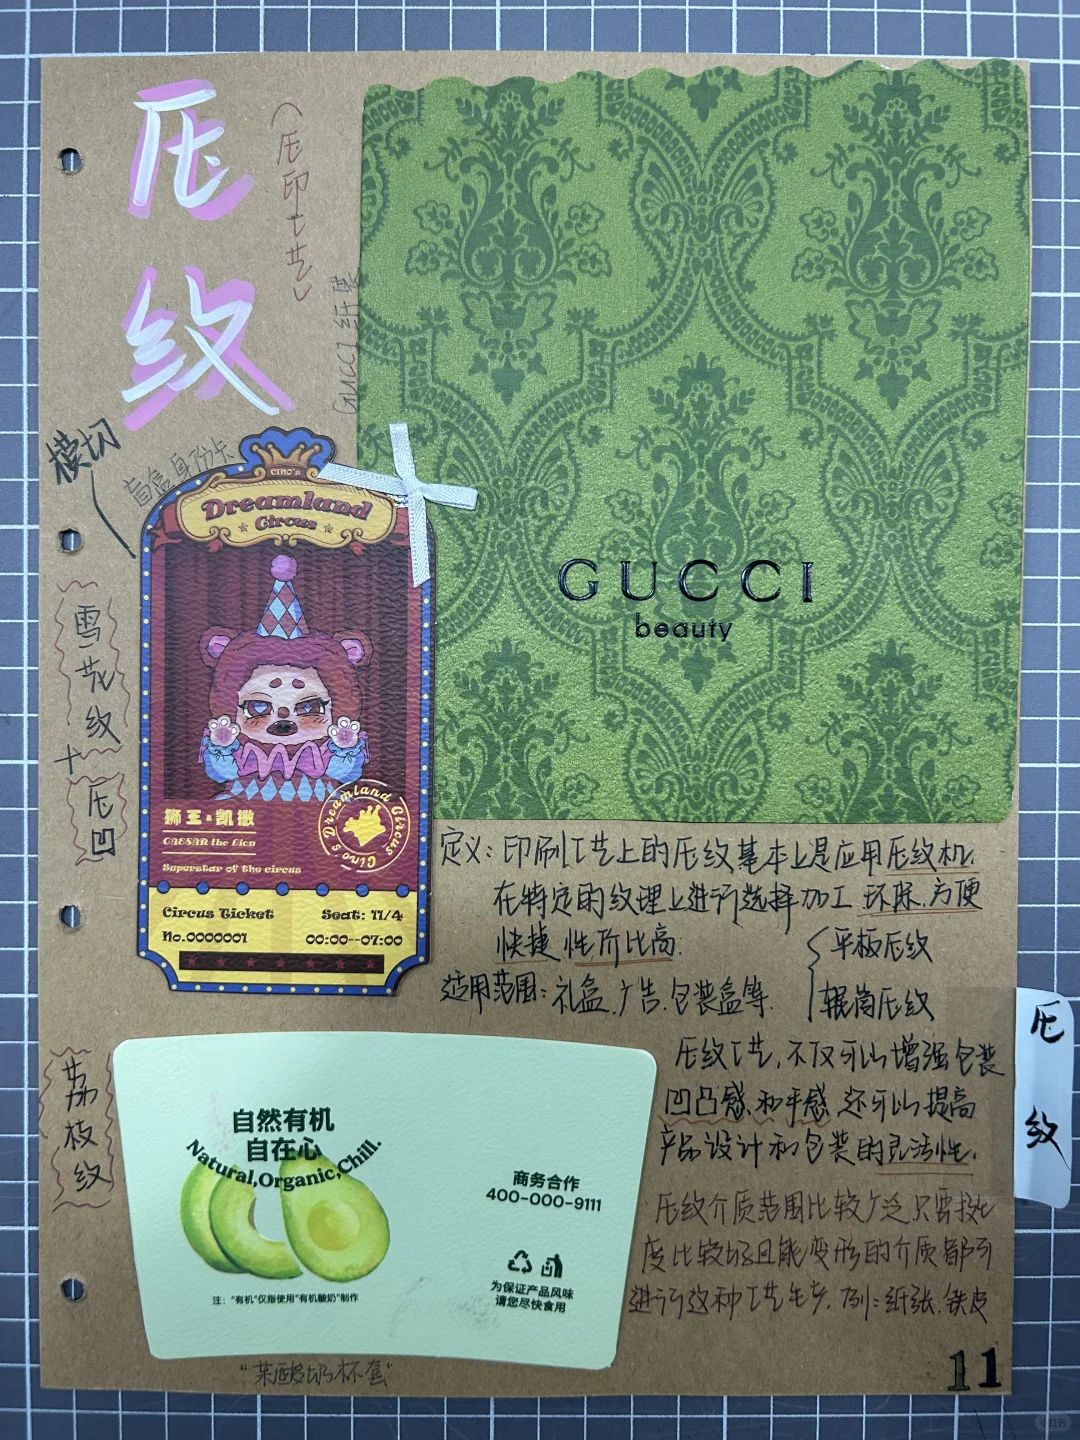 压纹
(压印工艺)
GUCCI 纸袋
GUCCI
beauty
模切
盲盒身份卡
CINO'S
Dreamland
Circus
雪花纹
+
压凹
狮王·凯撒
CAESAR the Lion
Superstar of the circus
Cino's Dreamland Circus
Circus Ticket
Seat: 11/4
No.0000001
00:00--07:00
定义：印刷工艺上的压纹基本上是应用压纹机.
在特定的纹理上进行选择加工 环保.方便
快捷 性价比高.
适用范围：礼盒.广告.包装盒等.
平板压纹
辊筒压纹
压纹工艺,不仅可以增强包装
凹凸感和手感,还可以提高
产品设计和包装的灵活性.
压纹介质范围比较广泛只需找
度比较好且能变形的介质都可
进行这种工艺生产.例：纸张.铁皮
压纹
荔枝纹
自然有机
自在心
Natural,Organic,Chill.
商务合作
400-000-9111
为保证产品风味
请您尽快食用
注："有机"仅指使用"有机酸奶"制作
"茉酸奶杯套"
11
小红书